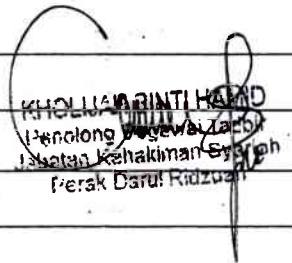 BINTI
Penolong Pegawai Tadbir
Jabatan Kehakiman Syariah
Perak Darul Ridzuan